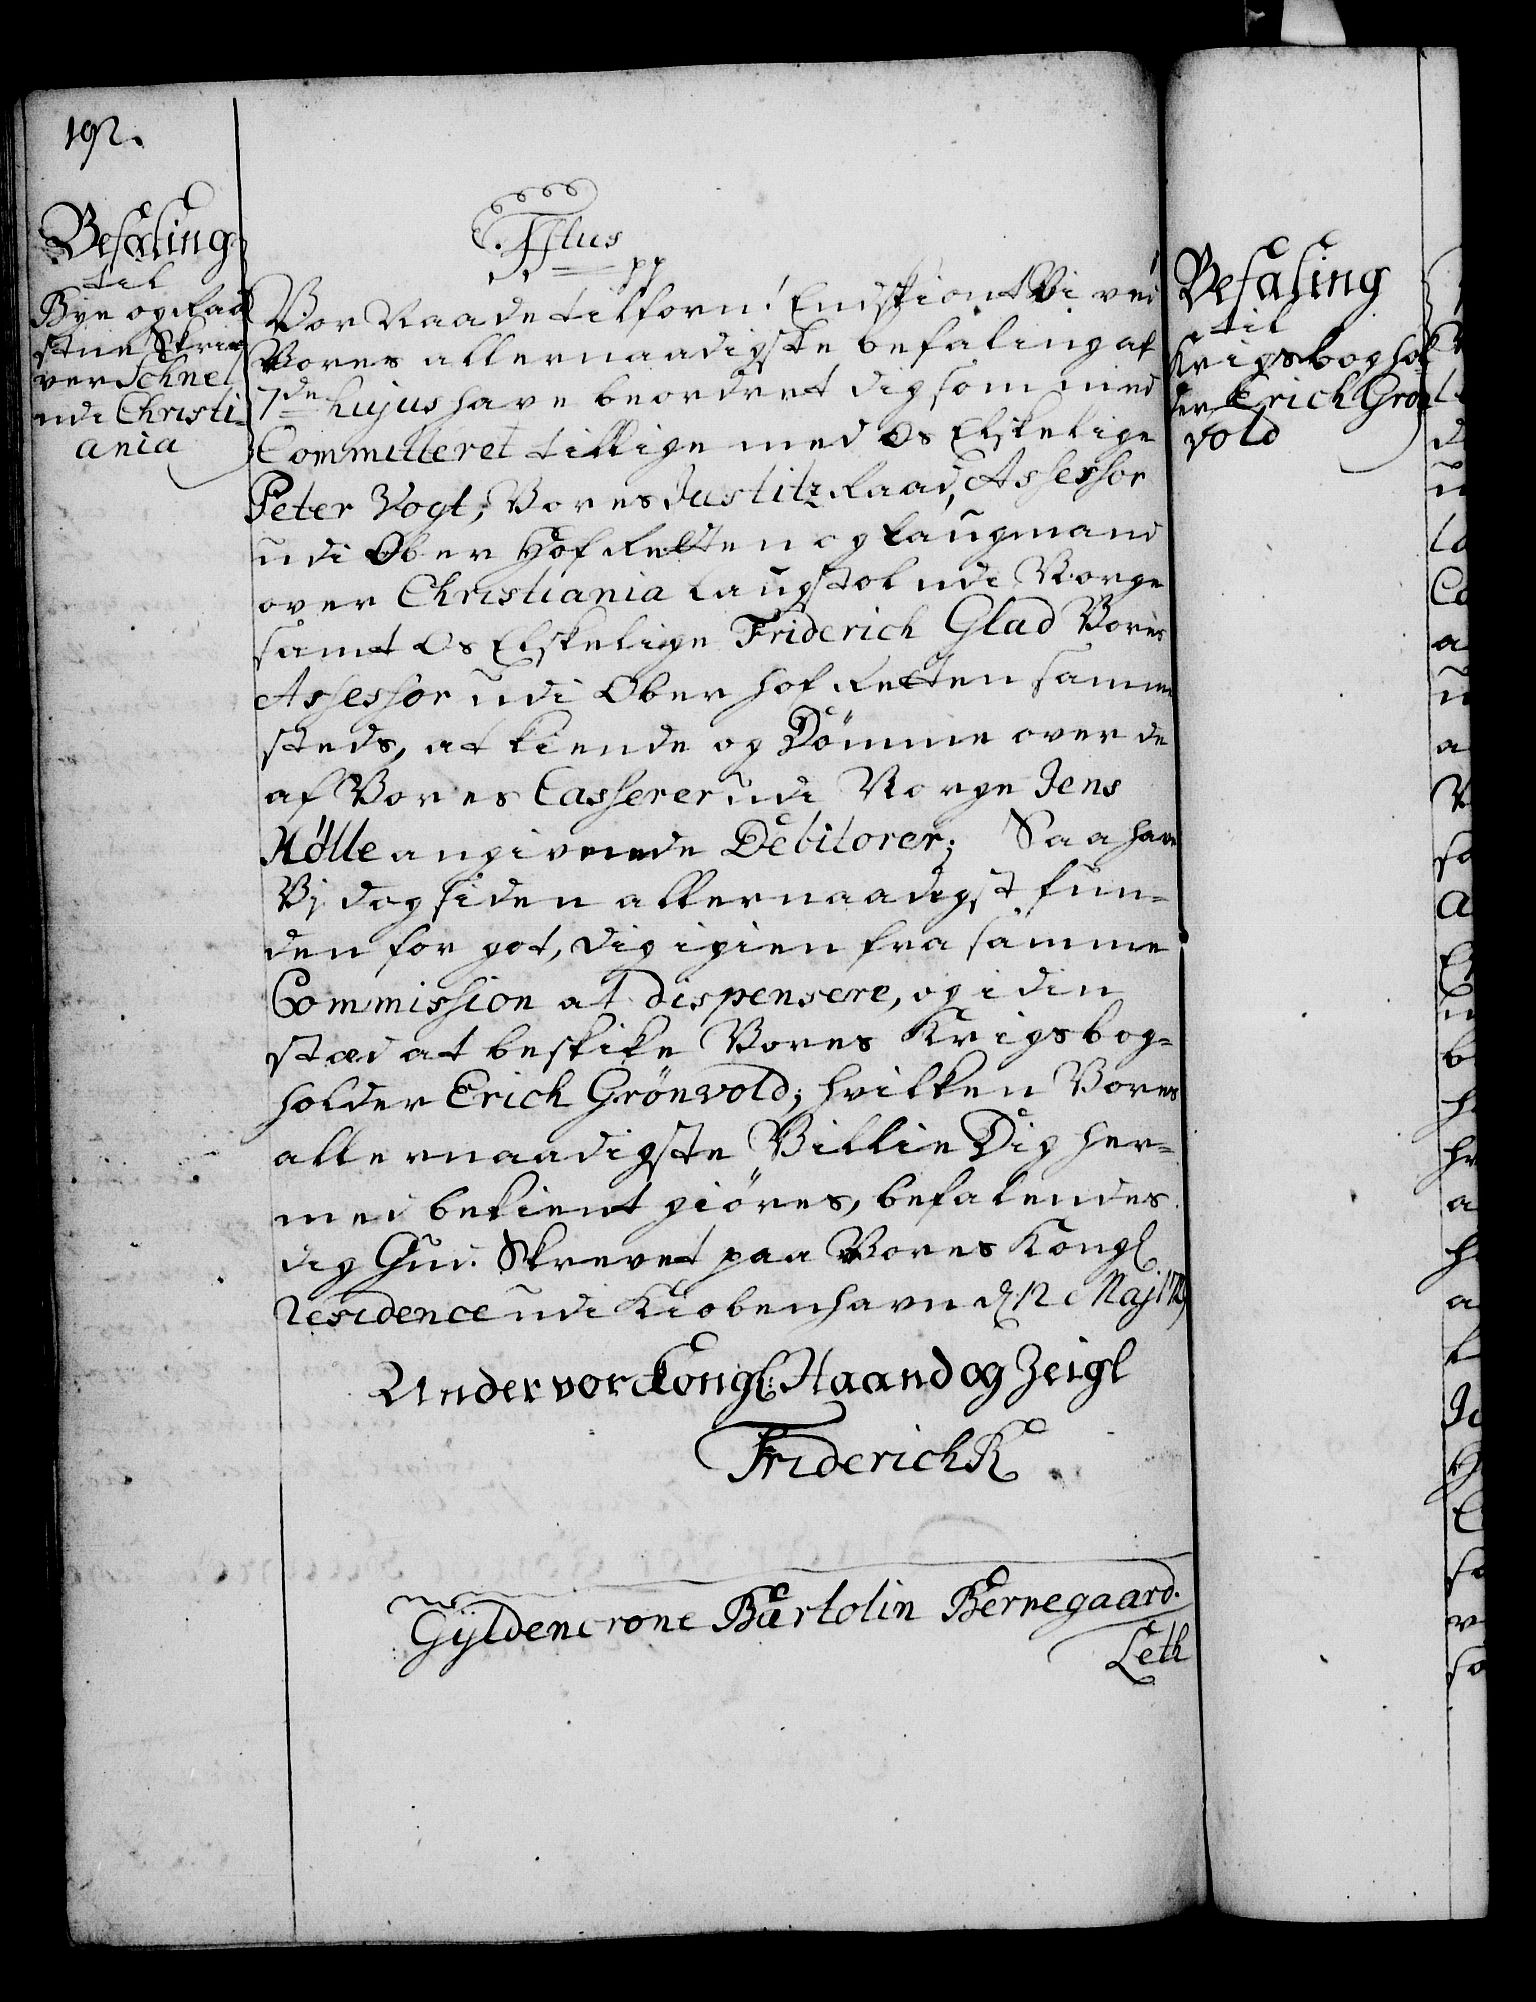 192.
Befaling
til
Bye og Raad
stue Skri-
ver Schnel
udi Christi-
ania
F. 4tus
pp
Vor Naade tilforn! Endskiont Vi ved
Vores allernaadigste befaling af
7de hujus have beordret dig som med
Committeret tillige med Os Elskelige
Peter Vogt, Vores Justitz Raad, Assessor
udi Ober Hof Retten og Laugmand
over Christiania Laugstol udi Norge
samt Os Elskelige Friderich Glad Vores
Assessor udi Ober Hof Retten samme
steds, at kiende og Dömme over de
af Vores Casserer udi Norge Jens
Kölle angivende Debitorer; Saa have
Vi dog siden allernaadigst fun-
den for got, dig igien fra samme
Commission at dispensere, og i din
stæd at beskike Vores Krigsbog-
holder Erich Grönvold; hvilken Vores
allernaadigste Villie Dig her-
med bekient giöres, befalendes
dig Gud. Skrevet paa Vores Kongl
residence udi Kiobenhavn d 12 Maj
Under vor Kongl: Haand og Zeigl
Friderich R
Gyldencrone Bartolin Bernegaard.
Leth
Befaling
til
Krigsboghol
der Erich Grön
vold